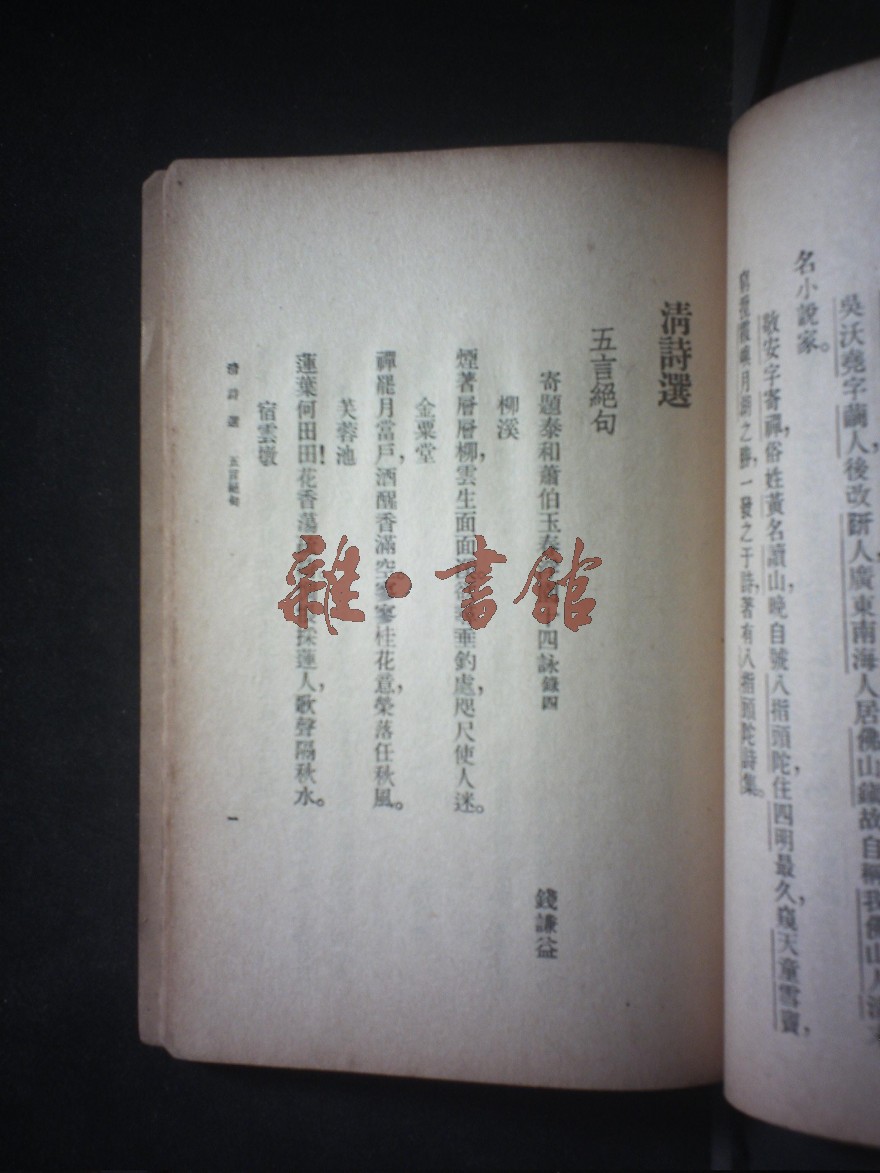 吳沃堯字繭人,後改趼人,廣東南海人,居佛山鎮,故自稱我佛山人,清末
名小說家。
敬安字寄禪,俗姓黃名讀山,晚自號八指頭陀,住四明最久,窺天童雪竇,
霞嶼月湖之勝,一發之于詩,著有八指頭陀詩集。
清詩選
五言絕句
寄題泰和蕭伯玉春 四詠錄四
錢謙益
柳溪
煙著層層柳,雲生面面 垂釣處,咫尺使人迷。
金粟堂
禪罷月當戶,酒醒香滿空 寥桂花意,榮落任秋風。
芙蓉池
蓮葉何田田!花香蕩 採蓮人,歌聲隔秋水。
宿雲墩
清詩選 五言絕句
一
雜·書館